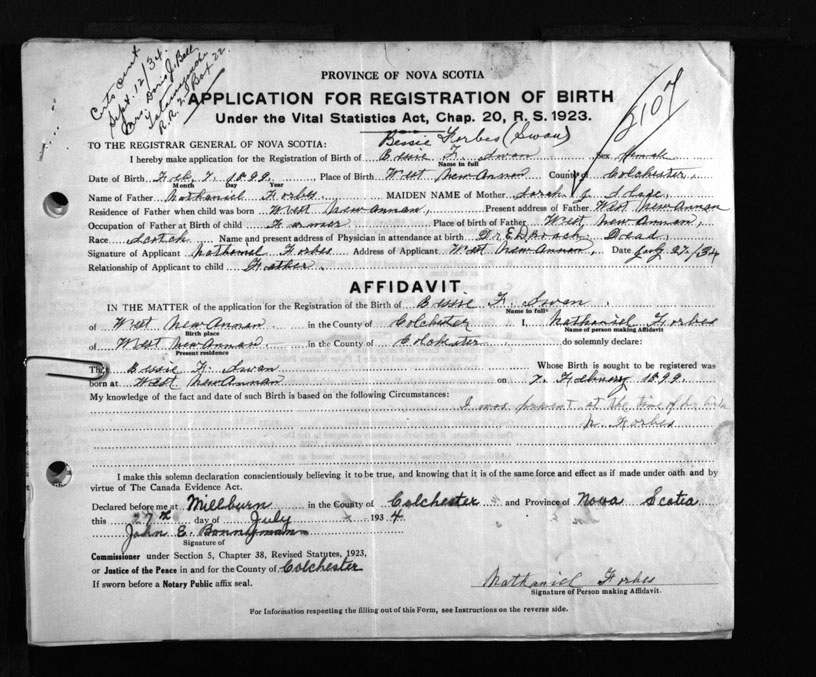 Certs sent
Sept. 12/34.
Doris J. Bell
Tatamagouche
R.R. 2. Box 22.
2107
PROVINCE OF NOVA SCOTIA
APPLICATION FOR REGISTRATION OF BIRTH
Under the Vital Statistics Act, Chap. 20, R. S. 1923.
Bessie Forbes (Swan)
TO THE REGISTRAR GENERAL OF NOVA SCOTIA:
I hereby make application for the Registration of Birth of Bessie F. Swan sex Female
Name in full
Date of Birth Feb. 7. 1899 Place of Birth West New Annan County of Colchester,
Month Day Year
Name of Father Nathaniel Forbes MAIDEN NAME of Mother Sarah J.
Residence of Father when child was born West New Annan, Present address of Father West New Annan
Occupation of Father at Birth of child Farmer Place of birth of Father West New Annan,
Race Scotch Name and present address of Physician in attendance at birth Dr E D Roach, Dead
Signature of Applicant Nathaniel Forbes Address of Applicant West New Annan, Date July 27/34
Relationship of Applicant to child Father.
AFFIDAVIT
IN THE MATTER of the application for the Registration of the Birth of Bessie F. Swan
Name in full
of West New Annan in the County of Colchester I, Nathaniel Forbes
Birth place Name of person making Affidavit
of West New Annan in the County of Colchester do solemnly declare:
Present residence
That Bessie F. Swan Whose Birth is sought to be registered was
born at West New Annan on 7. February 1899.
My knowledge of the fact and date of such Birth is based on the following Circumstances:
I was present at the time of her birth
N. Forbes
I make this solemn declaration conscientiously believing it to be true, and knowing that it is of the same force and effect as if made under oath and by
virtue of The Canada Evidence Act.
Declared before me at Millburn in the County of Colchester and Province of Nova Scotia
this 27th day of July 1934
John E. Bonnyman
Signature of
Commissioner under Section 5, Chapter 38, Revised Statutes, 1923,
or Justice of the Peace in and for the County of Colchester
If sworn before a Notary Public affix seal.
Nathaniel Forbes
Signature of Person making Affidavit.
For Information respecting the filling out of this Form, see Instructions on the reverse side.